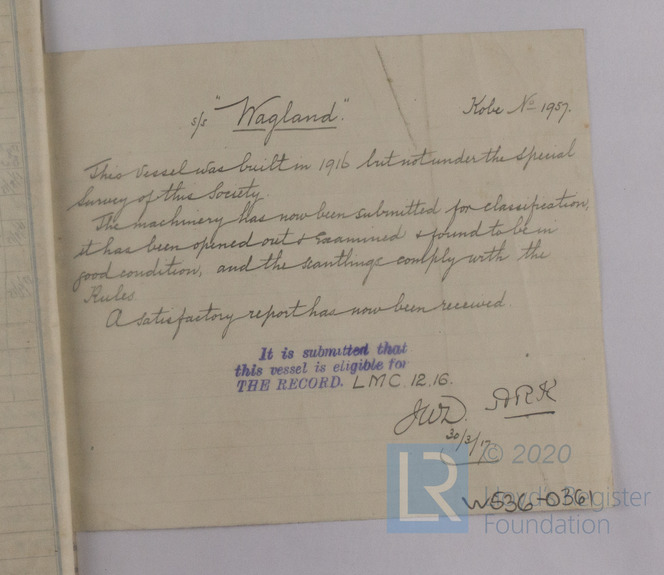 s/s "Wagland."
Kobe No 1957.
This Vessel was built in 1916 but not under the special
Survey of this Society.
The machinery has now been submitted for classification,
it has been opened out & examined & found to be in
good condition, and the scantlings comply with the
Rules
A satisfactory report has now been received.
It is submitted that
this vessel is eligible for
THE RECORD. LMC. 12.16.
JWD. ARK
30/3/17
LR
© 2020
Lloyd's Register
Foundation
W536-0361